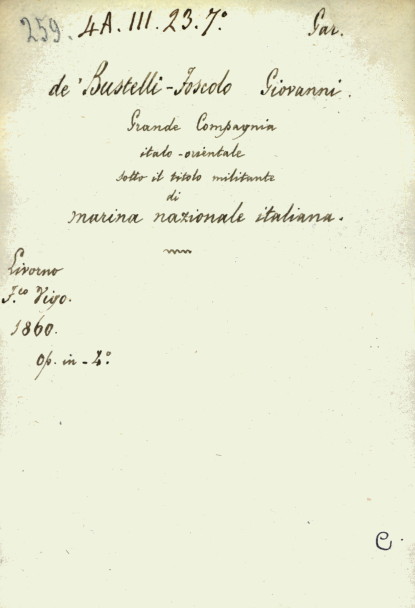 259. 4A. III. 23. 7.° Gar.
de' Bustelli-Foscolo Giovanni.
Grande Compagnia
italo-orientale
sotto il titolo militante
di
marina nazionale italiana.
Livorno
F.co Vigo.
1860.
Op. in-4.°
C.